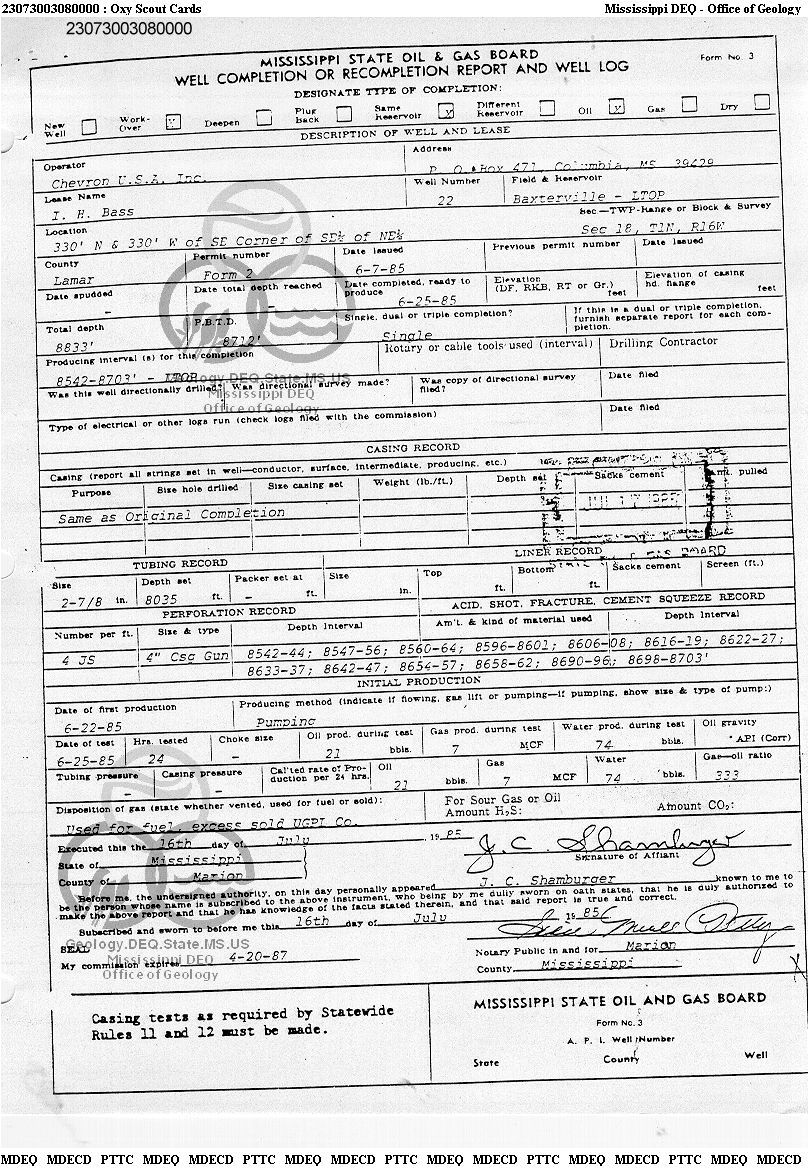 23073003080000 : Oxy Scout Cards Mississippi DEQ - Office of Geology
23073003080000
MISSISSIPPI STATE OIL & GAS BOARD Form No. 3
WELL COMPLETION OR RECOMPLETION REPORT AND WELL LOG
DESIGNATE TYPE OF COMPLETION:
New Well Work-Over y Deepen Plug Back Same Reservoir y Different Reservoir Oil y Gas Dry
DESCRIPTION OF WELL AND LEASE
Operator Address
Chevron U.S.A. Inc. P. O. Box 471, Columbia, MS 39429
Lease Name Well Number Field & Reservoir
I. H. Bass 22 Baxterville - LTOP
Location Sec—TWP-Range or Block & Survey
330' N & 330' W of SE Corner of SE¼ of NE¼ Sec 18, T1N, R16W
County Permit number Date Issued Previous permit number Date Issued
Lamar Form 2 6-7-85
Date spudded Date total depth reached Date completed, ready to produce Elevation (DF, RKB, RT or Gr.) feet Elevation of casing hd. flange feet
- - 6-25-85
Total depth P.B.T.D. Single, dual or triple completion? If this is a dual or triple completion, furnish separate report for each completion.
8833' 8712' Single
Producing interval (s) for this completion Rotary or cable tools used (interval) Drilling Contractor
8542-8703' - LTOP
Geology.DEQ.State.MS.US
Was this well directionally drilled? Was directional survey made? Was copy of directional survey filed? Date filed
Mississippi DEQ
Office of Geology
Type of electrical or other logs run (check logs filed with the commission) Date filed
CASING RECORD
Casing (report all strings set in well—conductor, surface, intermediate, producing, etc.)
Purpose Size hole drilled Size casing set Weight (lb./ft.) Depth set Sacks cement Amt. pulled
Same as Original Completion
TUBING RECORD LINER RECORD
Size Depth set Packer set at Size Top Bottom Sacks cement Screen (ft.)
2-7/8 in. 8035 ft. - ft. in. ft. ft.
PERFORATION RECORD ACID, SHOT, FRACTURE, CEMENT SQUEEZE RECORD
Number per ft. Size & type Depth Interval Am't. & kind of material used Depth Interval
4 JS 4" Csg Gun 8542-44; 8547-56; 8560-64; 8596-8601; 8606-08; 8616-19; 8622-27;
8633-37; 8642-47; 8654-57; 8658-62; 8690-96; 8698-8703'
INITIAL PRODUCTION
Date of first production Producing method (indicate if flowing, gas lift or pumping—if pumping, show size & type of pump:)
6-22-85 Pumping
Date of test Hrs. tested Choke size Oil prod. during test Gas prod. during test Water prod. during test Oil gravity
6-25-85 24 - 21 bbls. 7 MCF 74 bbls. ° API (Corr)
Tubing pressure Casing pressure Cal'ted rate of Production per 24 hrs. Oil Gas Water Gas—oil ratio
- - 21 bbls. 7 MCF 74 bbls. 333
Disposition of gas (state whether vented, used for fuel or sold): For Sour Gas or Oil Amount H₂S: Amount CO₂:
Used for fuel, excess sold UGPI Co.
Executed this the 16th day of July , 19 85 J. C. Shamburger
State of Mississippi Signature of Affiant
County of Marion
Before me, the undersigned authority, on this day personally appeared J. C. Shamburger known to me to
be the person whose name is subscribed to the above instrument, who being by me dully sworn on oath states, that he is duly authorized to
make the above report and that he has knowledge of the facts stated therein, and that said report is true and correct.
Subscribed and sworn to before me this 16th day of July , 19 85
Geology.DEQ.State.MS.US
SEAL Notary Public in and for Marion
My commission expires 4-20-87 County Mississippi
Mississippi DEQ
Office of Geology
Casing tests as required by Statewide
Rules 11 and 12 must be made.
MISSISSIPPI STATE OIL AND GAS BOARD
Form No. 3
A. P. I. Well Number
State County Well
MDEQ MDECD PTTC MDEQ MDECD PTTC MDEQ MDECD PTTC MDEQ MDECD PTTC MDEQ MDECD PTTC MDEQ MDECD